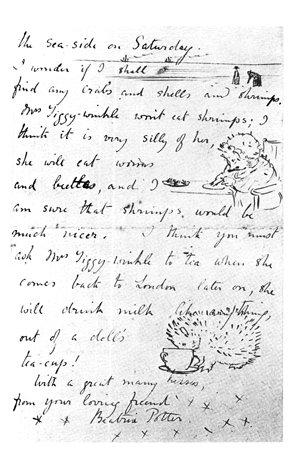 the sea-side on Saturday.
I wonder if I shall
find any crabs and shells and shrimps.
Mrs Tiggy-winkle won't eat shrimps; I
think it is very silly of her,
she will eat worms
and beetles, and I
am sure that shrimps would be
much nicer. I think you must
ask Mrs Tiggy-winkle to tea when she
comes back to London later on, she
will drink milk like anything
out of a doll's
tea-cup!
With a great many kisses
from your loving friend
x x x x x
Beatrix Potter.
x x x x